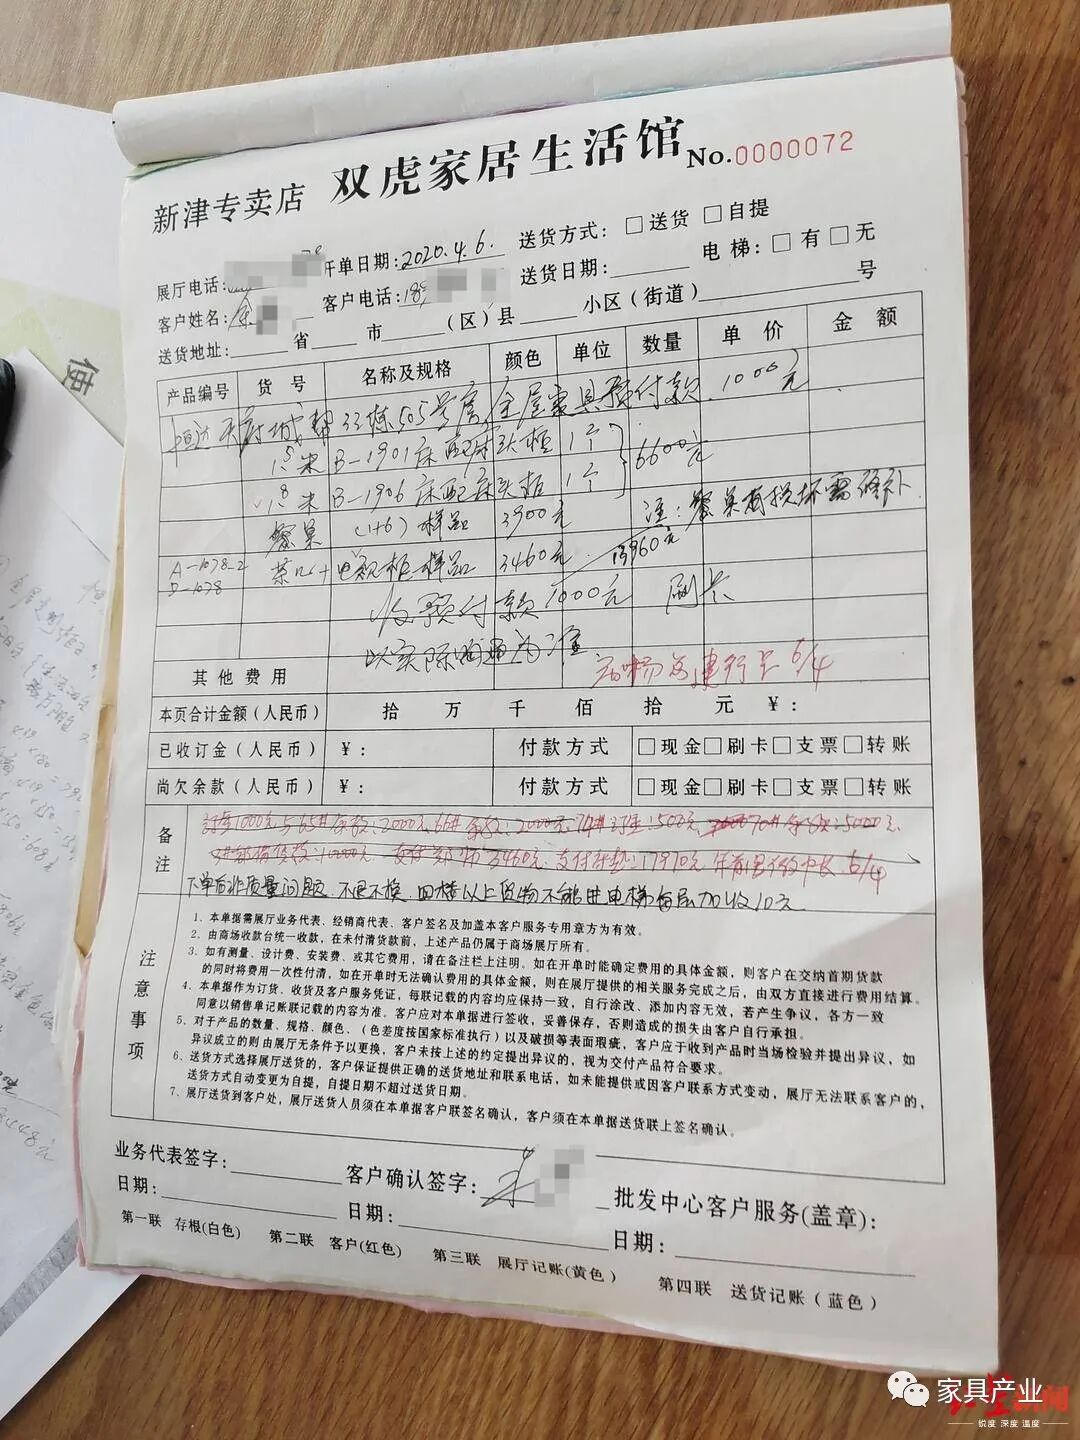 新津专卖店 双虎家居生活馆 No.0000072
展厅电话: 开单日期:2020.4.6. 送货方式: □送货 □自提
客户姓名:余 客户电话:189 送货日期: 电梯:□有□无
送货地址: 省 市 (区)县 小区(街道) 号
产品编号 货号 名称及规格 颜色 单位 数量 单价 金额
恒达天府城邦33栋505号房,全屋家具预付款 1000元
1.5米 B-1901床配床头柜 1个
6600元
1.8米 B-1906床配床头柜 1个
餐桌 (1+6) 样品 3900元 注:餐桌有损坏需修补
A-1078-2 茶几+电视柜样品 3460元 13960元
D-1078
收预付款1000元 刷卡
以实际 为准
其他费用 建行卡 6/4
本页合计金额(人民币) 拾 万 千 佰 拾 元 ¥:
已收订金(人民币) ¥: 付款方式 □现金□刷卡□支票□转账
尚欠余款(人民币) ¥: 付款方式 □现金□刷卡□支票□转账
备注
订金1000元与65#余款:2000元,66#余款:2000元,74#订金:500元, 70#余款:5000元.
3460元 17910元 6/4
下单后非质量问题,不退不换,四楼以上货物不能进电梯每层加收10元
注意事项
1、本单据需展厅业务代表、经销商代表、客户签名及加盖本客户服务专用章方为有效。
2、由商场收款台统一收款,在未付清货款前,上述产品仍属于商场展厅所有。
3、如有测量、设计费、安装费、或其它费用,请在备注栏上注明。如在开单时能确定费用的具体金额,则客户在交纳首期货款
的同时将费用一次性付清,如在开单时无法确认费用的具体金额,则在展厅提供的相关服务完成之后,由双方直接进行费用结算。
4、本单据作为订货、收货及客户服务凭证,每联记载的内容均应保持一致,自行涂改、添加内容无效,若产生争议,各方一致
同意以销售单记账联记载的内容为准。客户应对本单据进行签收,妥善保存,否则造成的损失由客户自行承担。
5、对于产品的数量、规格、颜色、(色差度按国家标准执行)以及破损等表面瑕疵,客户应于收到产品时当场检验并提出异议,如
异议成立的则由展厅无条件予以更换,客户未按上述的约定提出异议的,视为交付产品符合要求。
6、送货方式选择展厅送货的,客户保证提供正确的送货地址和联系电话,如未能提供或因客户联系方式变动,展厅无法联系客户的,
送货方式自动变更为自提,自提日期不超过送货日期。
7、展厅送货到客户处,展厅送货人员须在本单据客户联签名确认,客户须在本单据送货联上签名确认。
业务代表签字: 客户确认签字: 批发中心客户服务(盖章):
日期: 日期: 日期:
第一联 存根(白色) 第二联 客户(红色) 第三联 展厅记账(黄色) 第四联 送货记账(蓝色)
家具产业
锐度 深度 温度